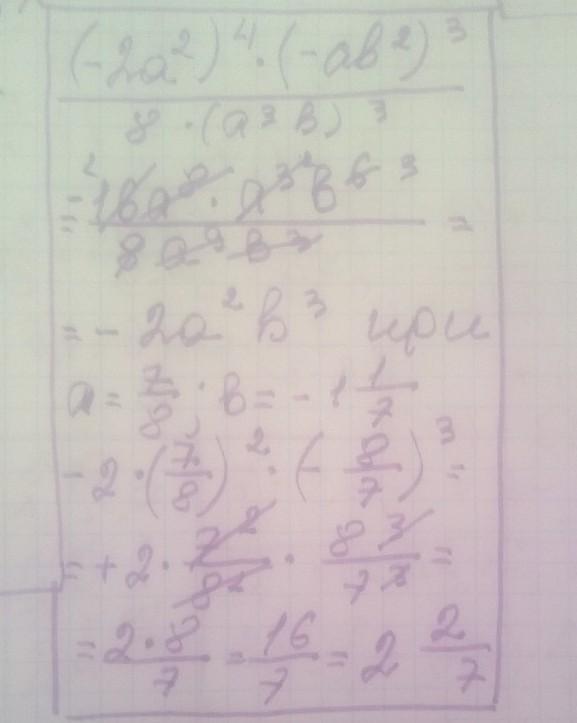 (-2a²)⁴ · (-ab²)³
8 · (a³b)³
= -16a⁸ · a³b⁶ =
8a⁹b³
= - 2a²b³ при
a = 7/8; b = - 1 1/7
-2 · (7/8)² · (- 8/7)³ =
= + 2 · 7²/8² · 8³/7³ =
= 2·8/7 = 16/7 = 2 2/7